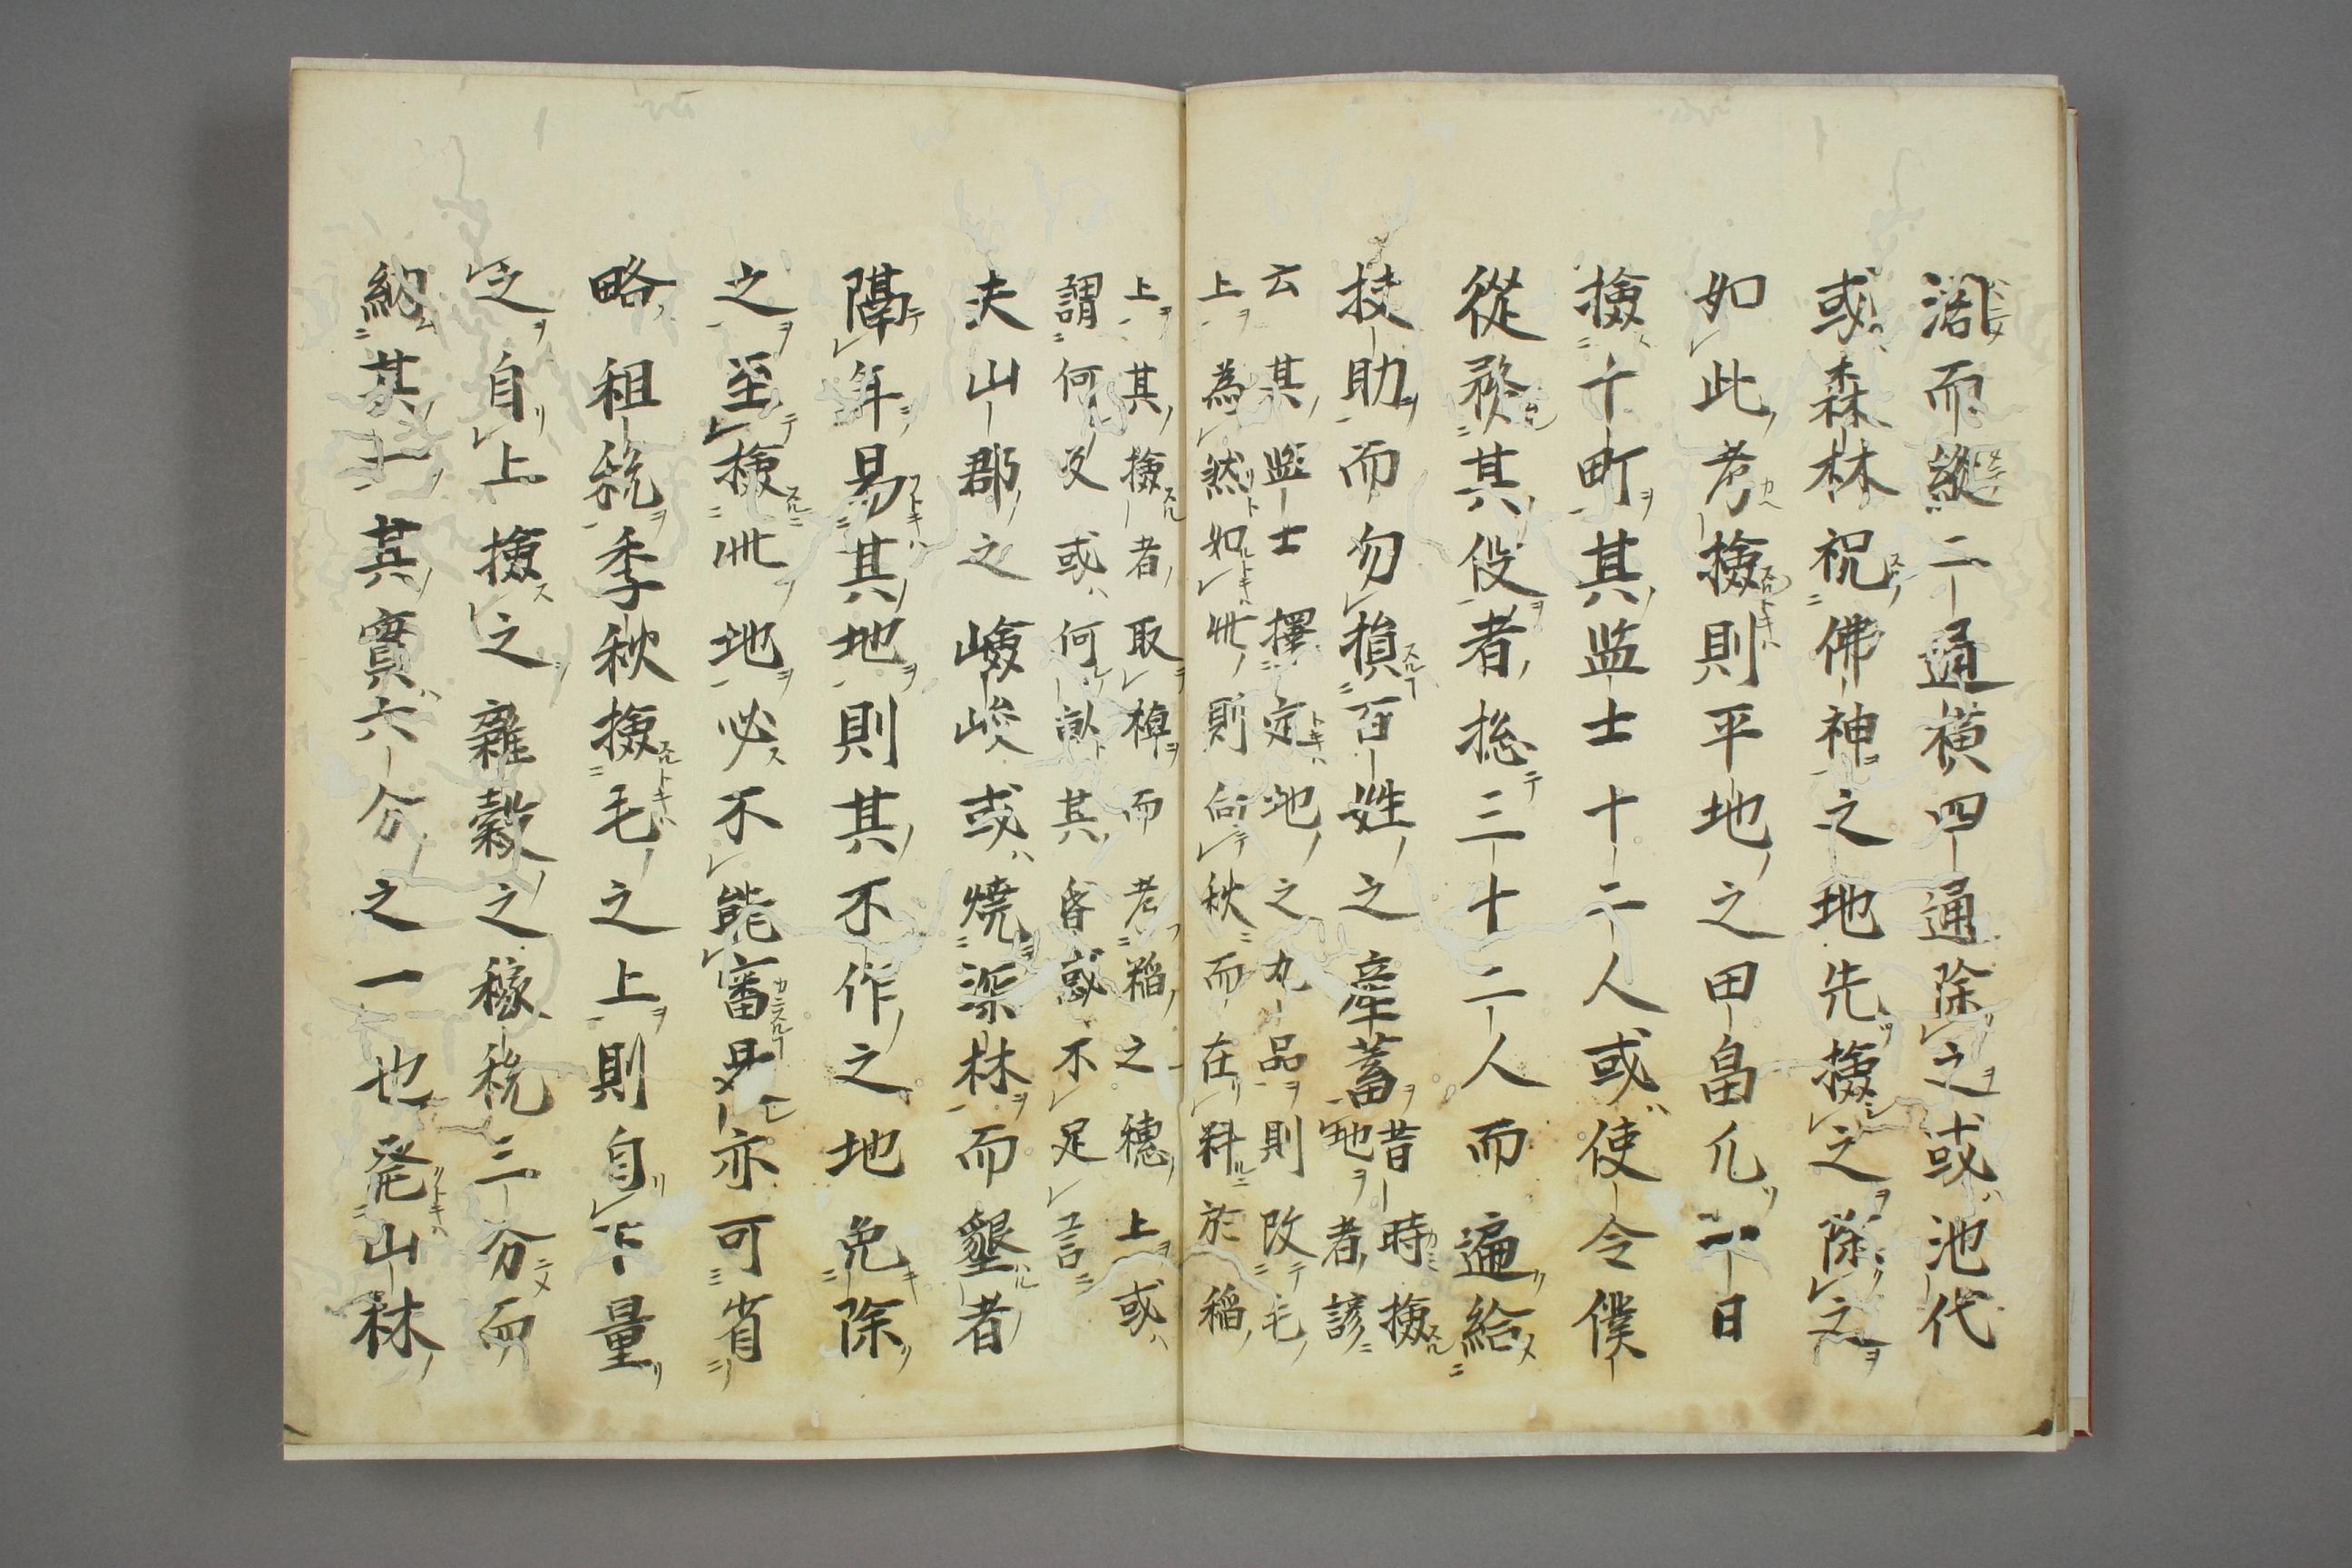 濶而縱二通横四通除之或池代
或森林祝佛神之地先撿之除之
如此考撿則平地之田畠凡一日
撿十町其監士十二人或使令僕
從発其役者捴三十二人而遍給
扶助而勿損百姓之産蓄昔時撿
地者諺
云其監士擇定地之九品則改毛
上為然如此則向秋而在料於稲
上其撿者取棹而考稲之穗上或
謂何及或何歟其昏惑不足言
夫山郡之嶮峻或燒深林而墾者
隔年易其地則其不作之地免除
之至撿此地必不能審是亦可省
略租税季秋撿毛之上則自下量
之自上撿之雜穀之稼税三分而
納其一其實六分之一也発山林